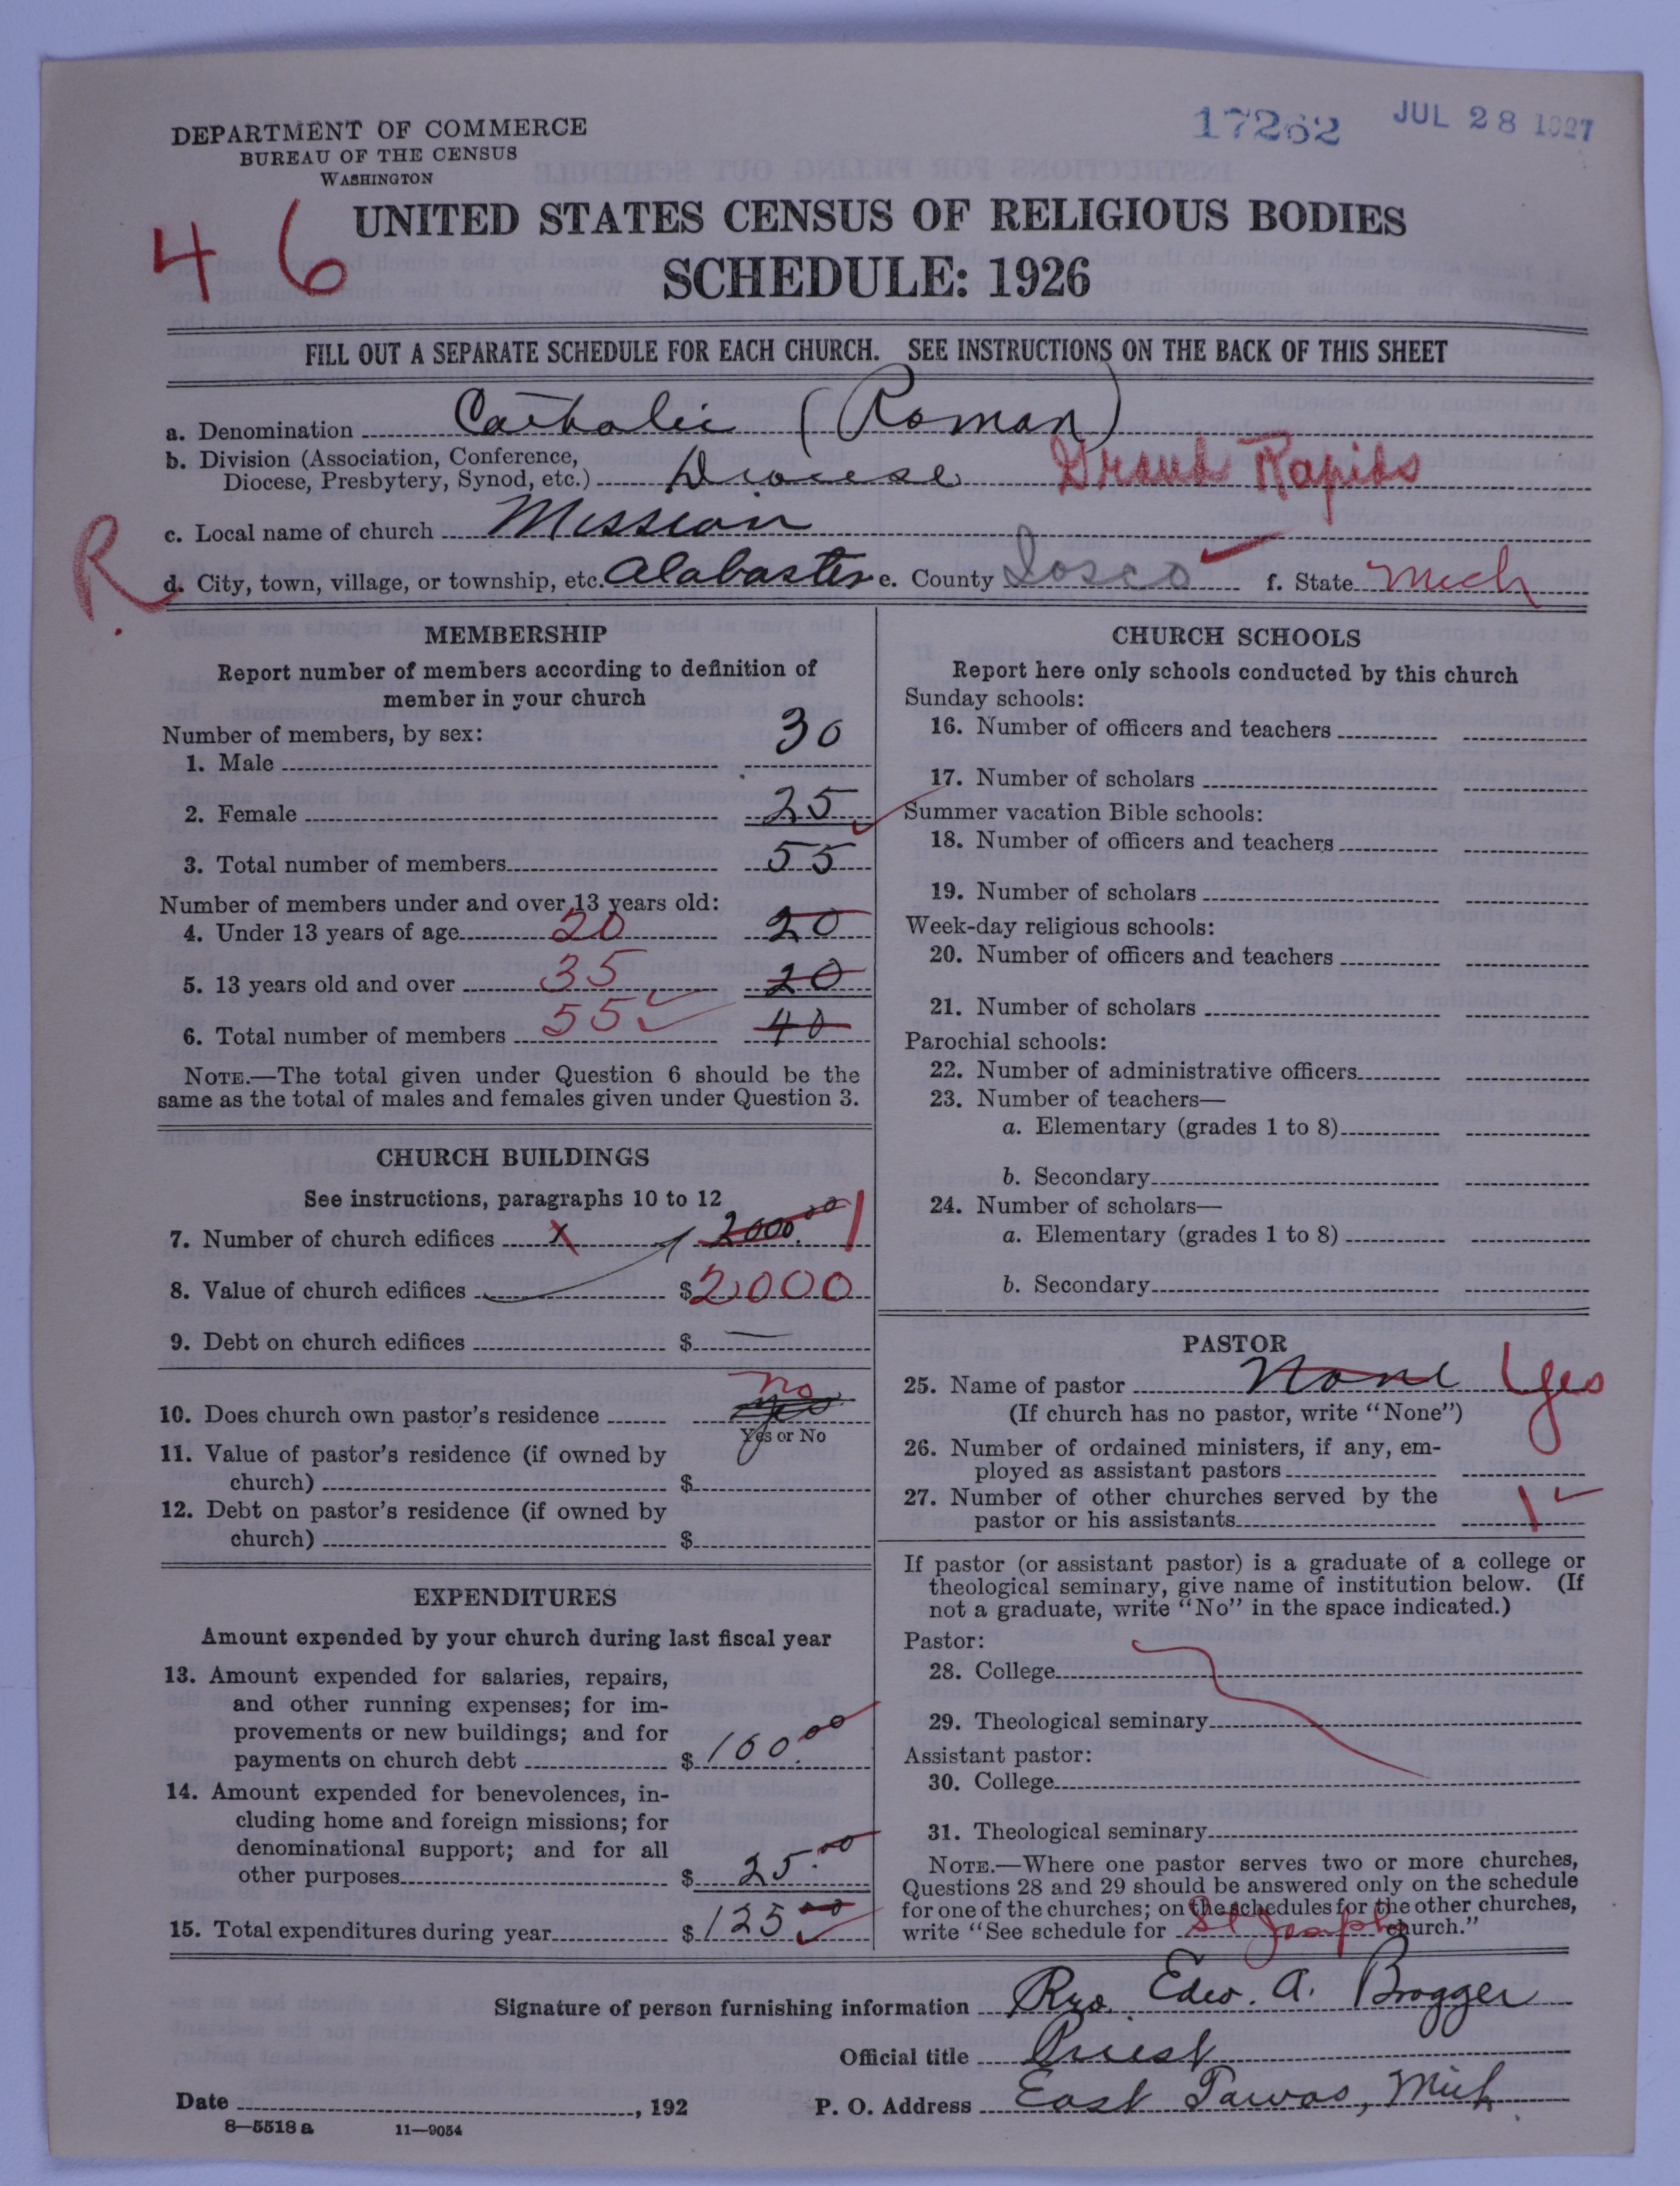 17262 JUL 28 1927
DEPARTMENT OF COMMERCE
BUREAU OF THE CENSUS
WASHINGTON
46
UNITED STATES CENSUS OF RELIGIOUS BODIES
SCHEDULE: 1926
FILL OUT A SEPARATE SCHEDULE FOR EACH CHURCH. SEE INSTRUCTIONS ON THE BACK OF THIS SHEET
a. Denomination Catholic (Roman)
b. Division (Association, Conference,
Diocese, Presbytery, Synod, etc.) Diocese Grand Rapids
c. Local name of church Mission
R.
d. City, town, village, or township, etc. Alabaster e. County Iosco f. State Mich
MEMBERSHIP
Report number of members according to definition of
member in your church
Number of members, by sex:
1. Male 30
2. Female 25
3. Total number of members 55
Number of members under and over 13 years old:
4. Under 13 years of age 20 20
5. 13 years old and over 35 20
6. Total number of members 55 40
NOTE.—The total given under Question 6 should be the
same as the total of males and females given under Question 3.
CHURCH BUILDINGS
See instructions, paragraphs 10 to 12
7. Number of church edifices x 2000.00 1
8. Value of church edifices $2000
9. Debt on church edifices $ —
10. Does church own pastor's residence yes no
Yes or No
11. Value of pastor's residence (if owned by
church) $
12. Debt on pastor's residence (if owned by
church) $
EXPENDITURES
Amount expended by your church during last fiscal year
13. Amount expended for salaries, repairs,
and other running expenses; for im-
provements or new buildings; and for
payments on church debt $100.00
14. Amount expended for benevolences, in-
cluding home and foreign missions; for
denominational support; and for all
other purposes $25.00
15. Total expenditures during year $125.00
CHURCH SCHOOLS
Report here only schools conducted by this church
Sunday schools:
16. Number of officers and teachers
17. Number of scholars
Summer vacation Bible schools:
18. Number of officers and teachers
19. Number of scholars
Week-day religious schools:
20. Number of officers and teachers
21. Number of scholars
Parochial schools:
22. Number of administrative officers
23. Number of teachers—
a. Elementary (grades 1 to 8)
b. Secondary
24. Number of scholars—
a. Elementary (grades 1 to 8)
b. Secondary
PASTOR
25. Name of pastor None Yes
(If church has no pastor, write "None")
26. Number of ordained ministers, if any, em-
ployed as assistant pastors
27. Number of other churches served by the
pastor or his assistants 1
If pastor (or assistant pastor) is a graduate of a college or
theological seminary, give name of institution below. (If
not a graduate, write "No" in the space indicated.)
Pastor:
28. College
29. Theological seminary
Assistant pastor:
30. College
31. Theological seminary
NOTE.—Where one pastor serves two or more churches,
Questions 28 and 29 should be answered only on the schedule
for one of the churches; on the schedules for the other churches,
write "See schedule for St Joseph church."
Signature of person furnishing information Rev. Edw. A. Brogger
Official title Priest
Date , 192 P. O. Address East Tawas, Mich.
8—5518 a 11—9054